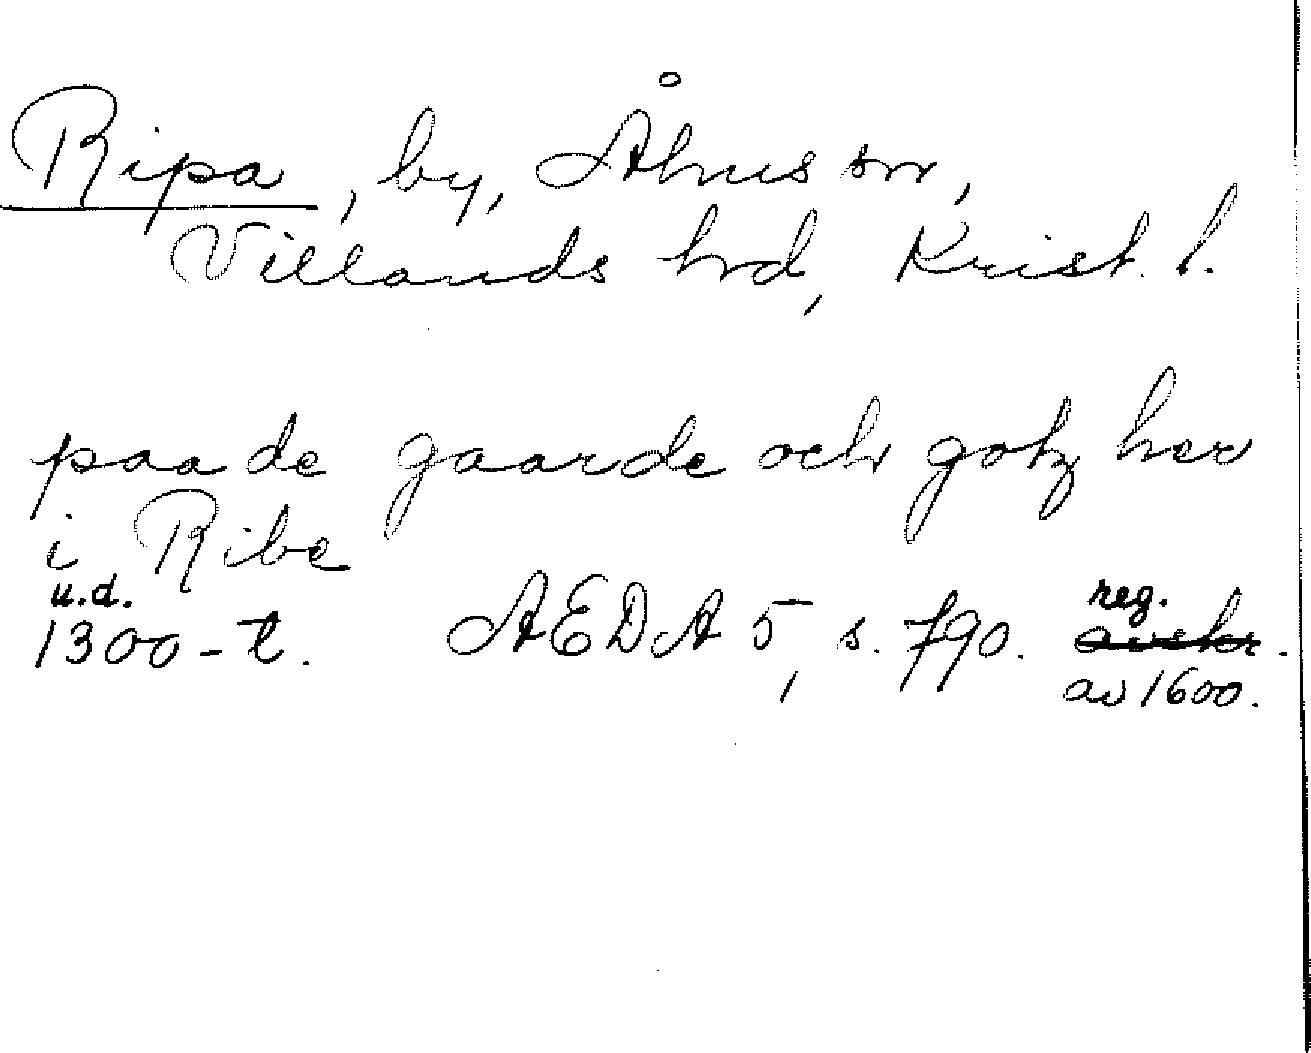 Ripa, by, Åhus sn,
Villands hd, Krist. l.
paade gaarde och gotz her
i Ribe
u.d.
1300-t. AEDA 5, s. 790. reg.
av 1600.